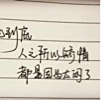 到底
人之所以矫情
都是因为太闲了